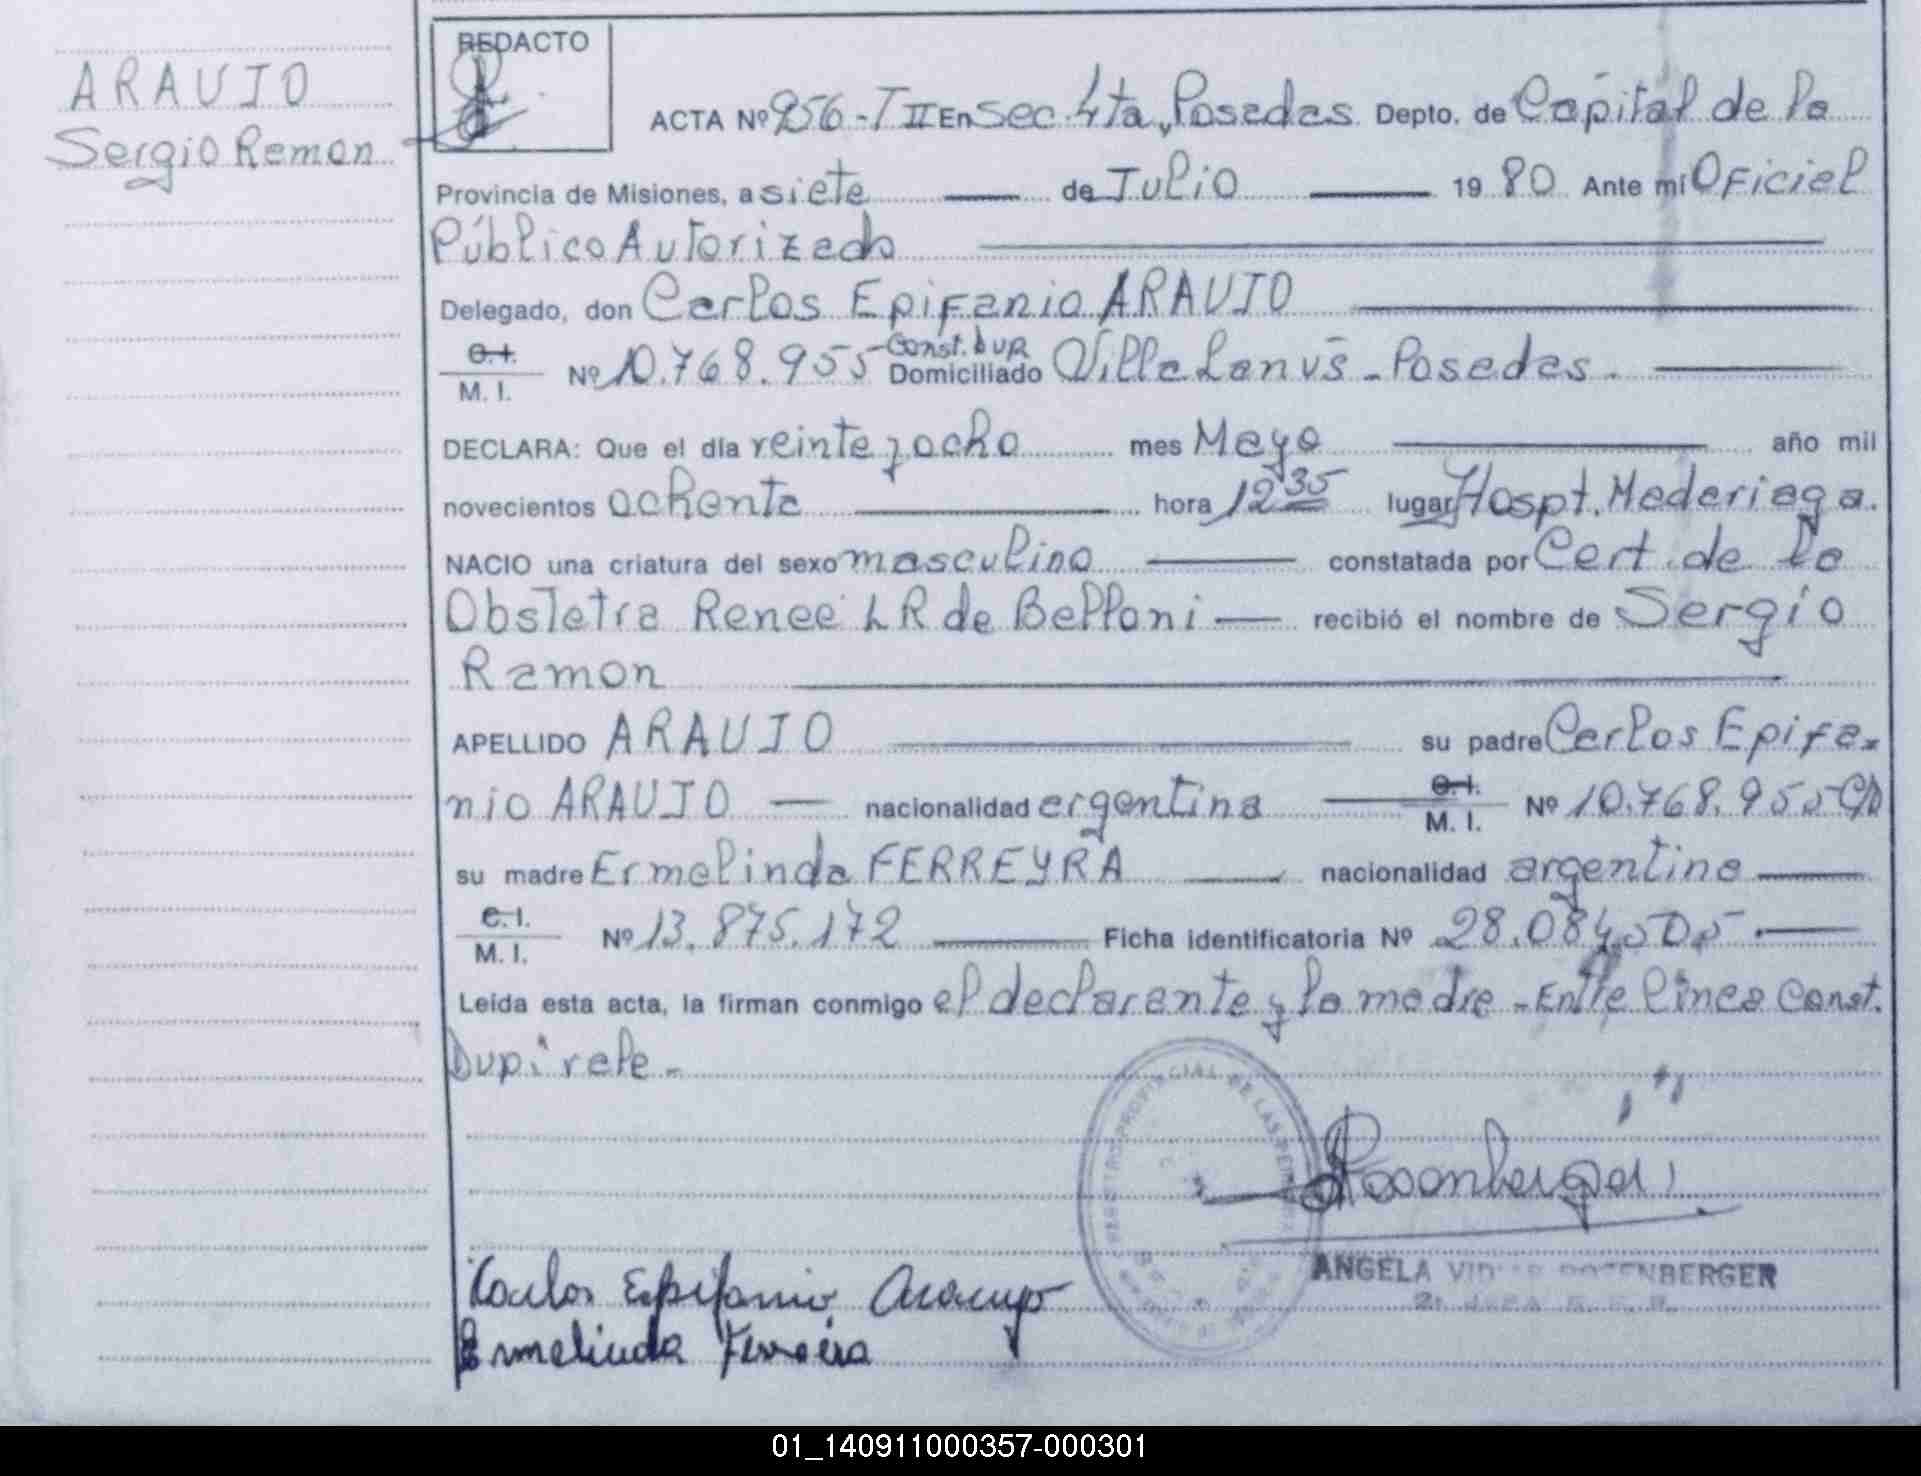 ARAUJO
Sergio Ramon
REDACTO
ACTA Nº 956-T II En Sec. 4ta, Posadas. Depto. de Capital de la
Provincia de Misiones, a siete de Julio 19 80 Ante mí Oficial
Público Autorizado
Delegado, don Carlos Epifanio ARAUJO
C.I. Const. DUP.
M. I. Nº 10.768.955 Domiciliado Villa Lanús - Posadas.
DECLARA: Que el día veinte y ocho mes Mayo año mil
novecientos ochenta hora 12 35 lugar Hospt. Madariaga.
NACIO una criatura del sexo masculino constatada por Cert. de la
Obstetra Renee L R de Belloni — recibió el nombre de Sergio
Ramon
APELLIDO ARAUJO su padre Carlos Epifa-
nio ARAUJO — nacionalidad argentina C.I. M. I. Nº 10.768.955 C/D
su madre Ermelinda FERREYRA nacionalidad argentina
C.I. M. I. Nº 13.875.172 Ficha identificatoria Nº 28.084.505.
Leída esta acta, la firman conmigo el declarante y la madre - Entre línea Const.
Dup. Vale -
REGISTRO PROVINCIAL DE LAS PERSONAS
Rosenberger
ANGELA ROTENBERGER
Carlos Epifanio Araujo
Ermelinda Ferreira
01_140911000357-000301